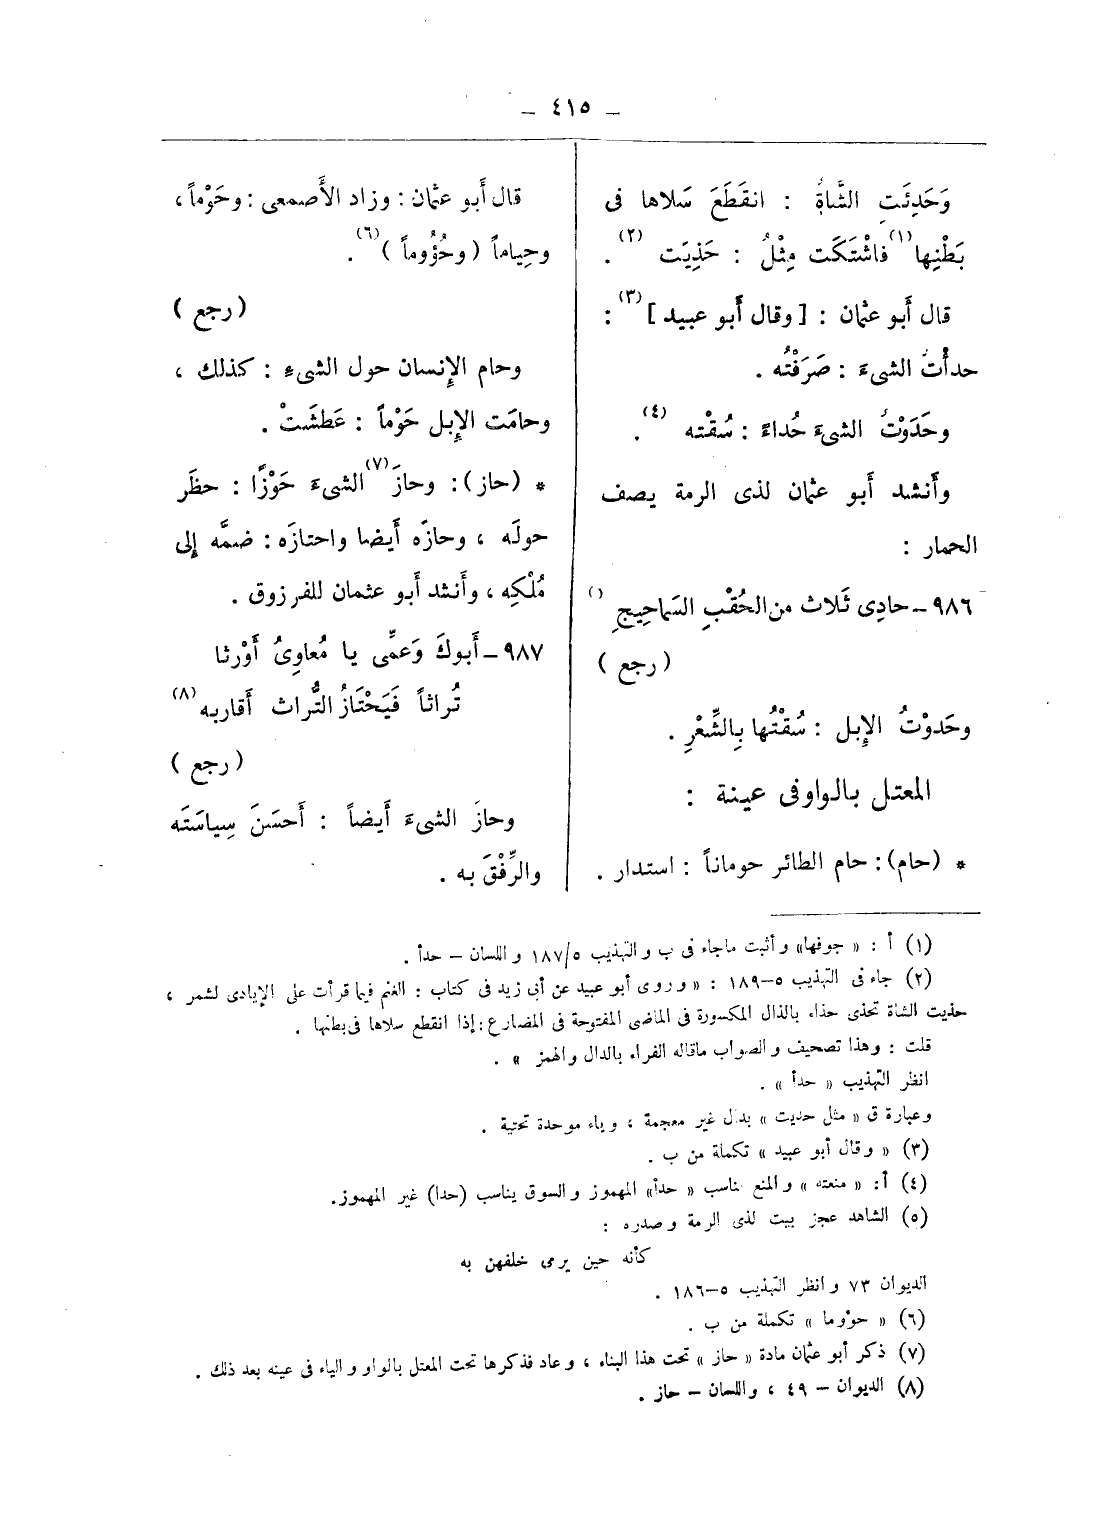 ـ ٤١٥ ـ
وَحَدِئَتِ الشَّاةُ : انقَطَعَ سَلاها فى
بَطْنِها(١) فاشْتَكَت مِثْلُ : حَذِيَت (٢) .
قال أَبو عثمان : [ وقال أَبو عبيد ] (٣) :
حدأْتُ الشىءَ : صَرَفْتُه .
وحَدَوْتُ الشىءَ حُداءً : سُقْته (٤) .
وأَنشد أَبو عثمان لذى الرمة يصف
الحمار :
٩٨٦ ـ حادِى ثَلاث من الحُقْبِ السَماحِيجِ ( )
( رجع )
وحَدوْتُ الإِبل : سُقْتُها بِالشِّعْرِ .
المعتل بالواو فى عينة :
* (حام): حام الطائر حوماناً : استدار .
قال أَبو عثمان : وزاد الأَصمعى : وحَوْماً ،
وحِياماً ( وحُؤُوماً ) (٦) .
( رجع )
وحام الإِنسان حول الشىءِ : كذلك ،
وحامَت الإِبل حَوْماً : عَطشَتْ .
* (حاز): وحازَ (٧) الشىءَ حَوْزًا : حظَر
حولَه ، وحازَه أَيضا واحتازَه : ضمَّه إِلى
مُلْكِه ، وأَنشد أَبو عثمان للفرزوق .
٩٨٧ ـ أَبوكَ وَعمِّى يا مُعاوِىُ أَوْرثا
تُراثاً فَيَحْتَازُ التُّراث أَقاربه (٨)
( رجع )
وحازَ الشىءَ أَيضاً : أَحسَنَ سِياسَتَه
والرِّفْقَ به .
(١) أ : « جوفها» وأثبت ماجاء فى ب والتهذيب ٥/١٨٧ واللسان – حدأ .
(٢) جاء فى التهذيب ٥–١٨٩ : « وروى أبو عبيد عن أبى زيد فى كتاب : الغنم فيما قرأت على الإيادى لشمر ،
حذيت الشاة تحذى حذاء بالذال المكسورة فى الماضى المفتوحة فى المضارع : إذا انقطع سلاها فى بطنها .
قلت : وهذا تصحيف والصواب ماقاله الفراء بالدال والهمز » .
انظر التهذيب « حدأ » .
وعبارة ق « مثل حديت » بدال غير معجمة ، وياء موحدة تحتية .
(٣) « وقال أبو عبيد » تكملة من ب .
(٤) أ: « منعته » والمنع يناسب « حدأ» المهموز والسوق يناسب (حدا) غير المهموز.
(٥) الشاهد عجز بيت لذى الرمة وصدره :
كأنه حين يرمى خلفهن به
الديوان ٧٣ وانظر التهذيب ٥–١٨٦ .
(٦) « حوُوما » تكملة من ب .
(٧) ذكر أبو عثمان مادة « حاز » تحت هذا البناء ، وعاد فذكرها تحت المعتل بالواو والياء فى عينه بعد ذلك .
(٨) الديوان – ٤٩ ، واللسان – حاز .